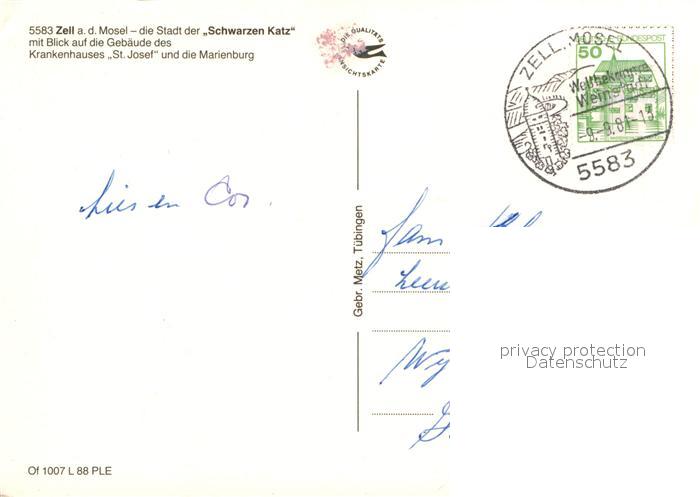 5583 Zell a. d. Mosel – die Stadt der „Schwarzen Katz“
mit Blick auf die Gebäude des
Krankenhauses „St. Josef“ und die Marienburg
DIE QUALITÄTS
ANSICHTSKARTE
DEUTSCHE BUNDESPOST
50
ZELL, MOSEL
Weltbekannte
5583
Lies en Cor.
Gebr. Metz, Tübingen
Fam
privacy protection
Datenschutz
Wy
Of 1007 L 88 PLE